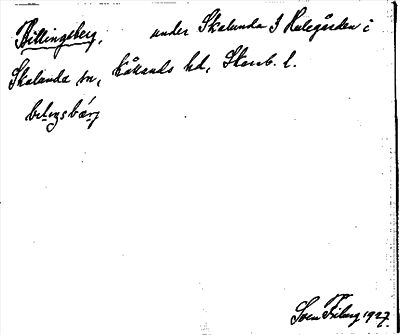 Billingsberg, under Skalunda 3 Hulegården i
Skalunda sn, Kållands hd, Skarab. l.
bɩlɩŋsbárj
Sven Friberg 1927.